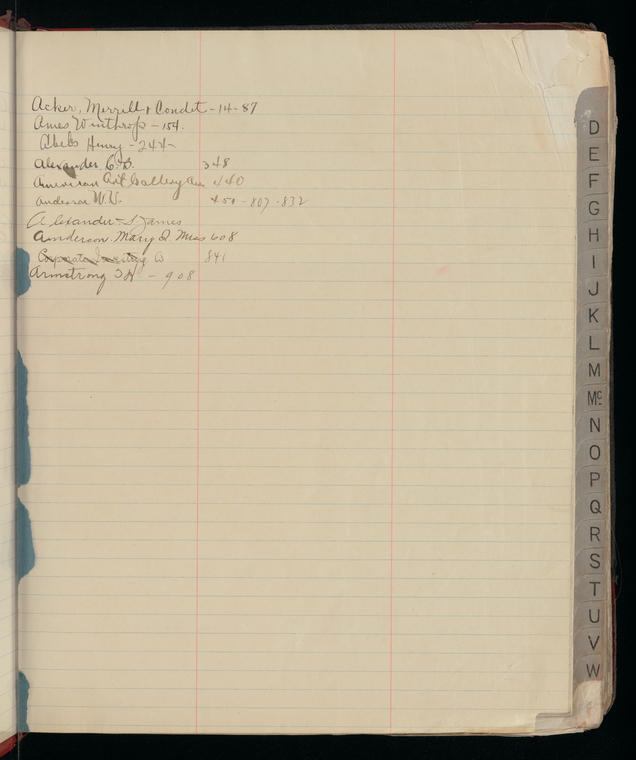 Acker, Merrill & Condit - 14 - 87
Ames Winthrop - 154.
Abels Henry - 244 -
Alexander C. B. 348
American Art Gallery 440
Anderson W. V. 450 - 807 - 832
Alexander James
Aanderson. Mary Q. Miss 608
Corporate Co 841
Armstrong - 908
D
E
F
G
H
I
J
K
L
M
Mc
N
O
P
Q
R
S
T
U
V
W